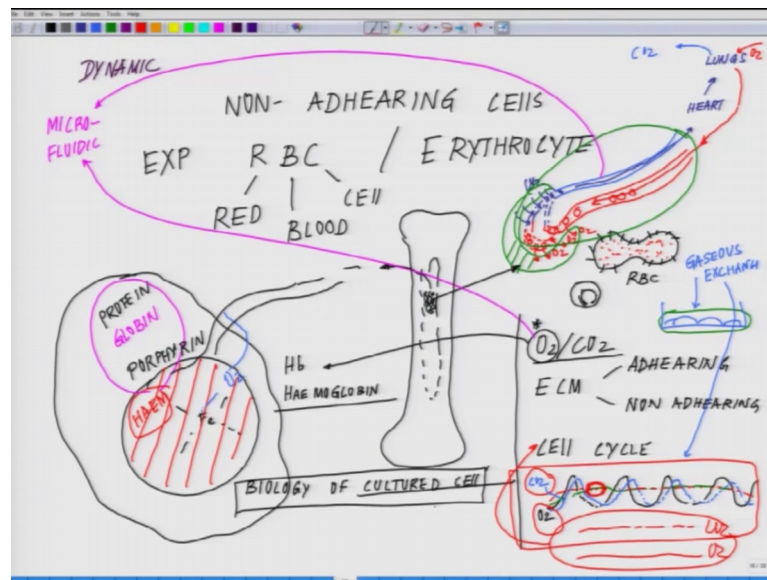 File Edit View Insert Actions Tools Help
DYNAMIC
MICRO-
FLUIDIC
NON- ADHEARING CELLS
EXP
R BC
/
ERYTHROCYTE
RED
BLOOD
CELL
CO2
LUNGS
O2
HEART
CO2
O2
O2
O2
RBC
GASEOUS
EXCHANGE
PROTEIN
GLOBIN
PORPHYRIN
O2
HAEM
Fe
Hb
HAEMOGLOBIN
*
O2/CO2
ECM
ADHEARING
NON ADHEARING
CELL CYCLE
BIOLOGY OF CULTURED CELL
CO2
O2
CO2
O2